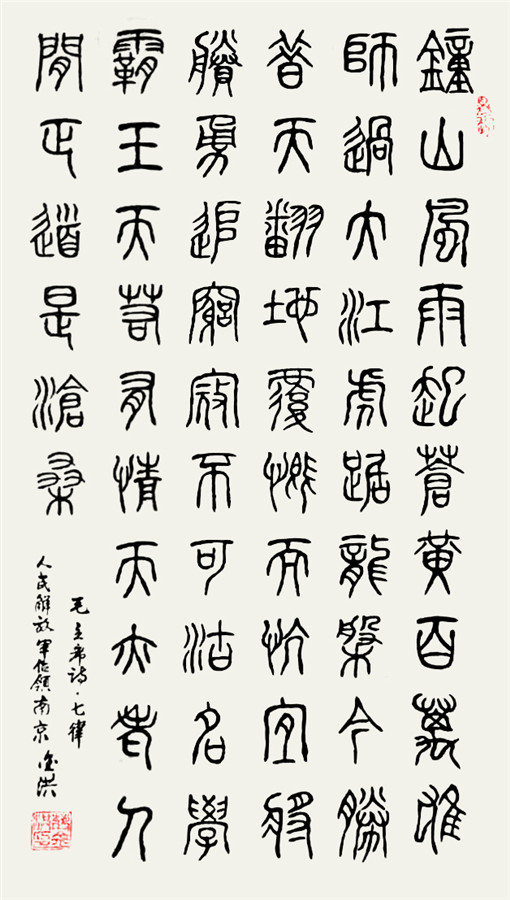 鐘山風雨起蒼黃百萬雄
師過大江虎踞龍槃今勝
昔天翻地覆慨而忼宜將
賸勇追窮寇不可沽名學
霸王天若有情天亦老人
閒正道是滄桑
毛主席詩·七律
人民解放軍佔領南京